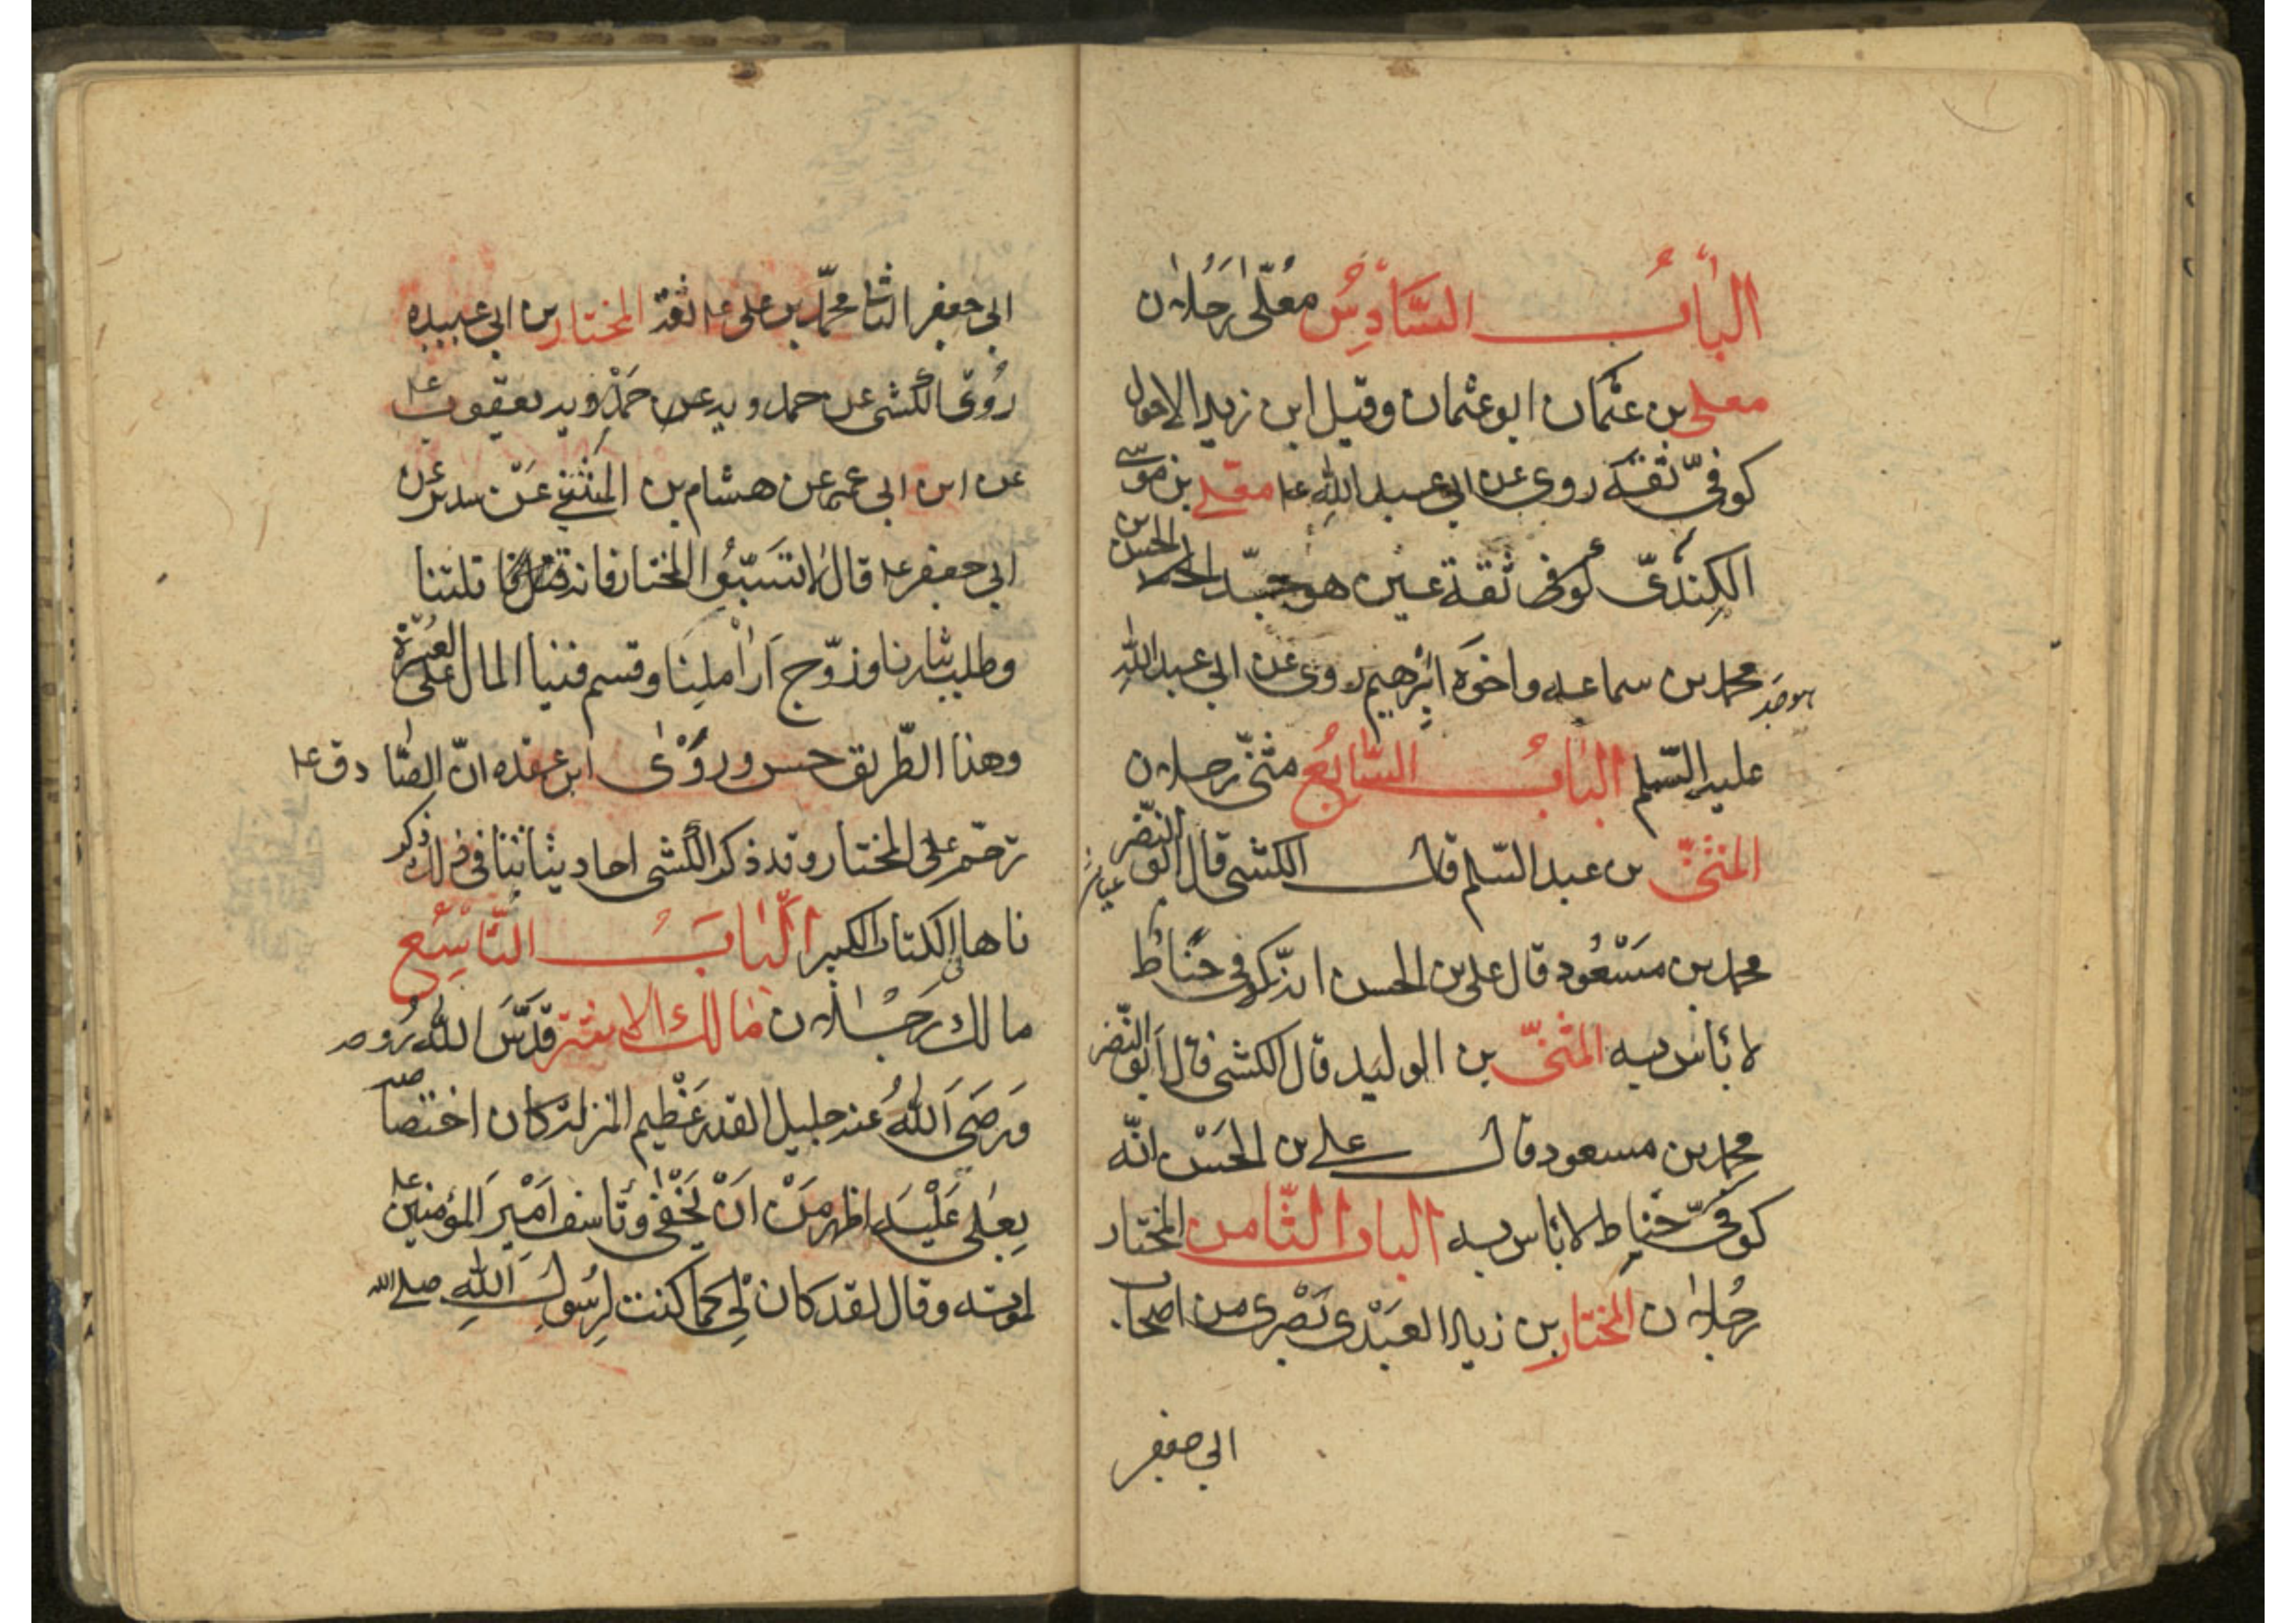 الباب السادس معلى رجلان
معلى بن عثمان ابو عثمان وقيل ابن زيد الاحول
كوفي ثقة روى عن ابي عبد الله ع معلى بن موسى
الكندي كوفي ثقة عين هو جد الحسن بن
محمد بن سماعه واخوه ابرهيم روى عن ابي عبد الله
عليه السلم الباب السابع مثنى رجلان
المثنى بن عبد السلم قال الكشي قال ابو النضر
محمد بن مسعود قال علي بن الحسن انه كوفي حناط
لا بأس به المثنى بن الوليد قال الكشي قال ابو النضر
محمد بن مسعود قال علي بن الحسن انه
كوفي حناط لا بأس به الباب الثامن المختار
رجلان المختار بن زياد العبدي بصري من اصحاب
ابي جعفر
ابي جعفر الثاني محمد بن علي ع ثقة المختار بن ابي عبيده
روى الكشي عن حمدويه عن يعقوب
عن ابن ابي عمير عن هشام بن المثنى عن سدير عن
ابي جعفر ع قال لا تسبوا المختار فانه قتل قتلتنا
وطلب بثارنا وزوج اراملنا وقسم فينا المال على العسرة
وهذا الطريق حسن وروى ابن عقده ان الصادق ع
ترحم على المختار وقد ذكر الكشي احاديث في ذلك ذكر
ناها في الكتاب الكبير الباب التاسع
مالك رجلان مالك الاشتر قدس الله روحه
ورضي الله عنه جليل القدر عظيم المنزلة كان اختصاصه
بعلي عليه اظهر من ان يخفى وتاسف امير المؤمنين ع
لموته وقال لقد كان لي كما كنت لرسول الله صلى الله